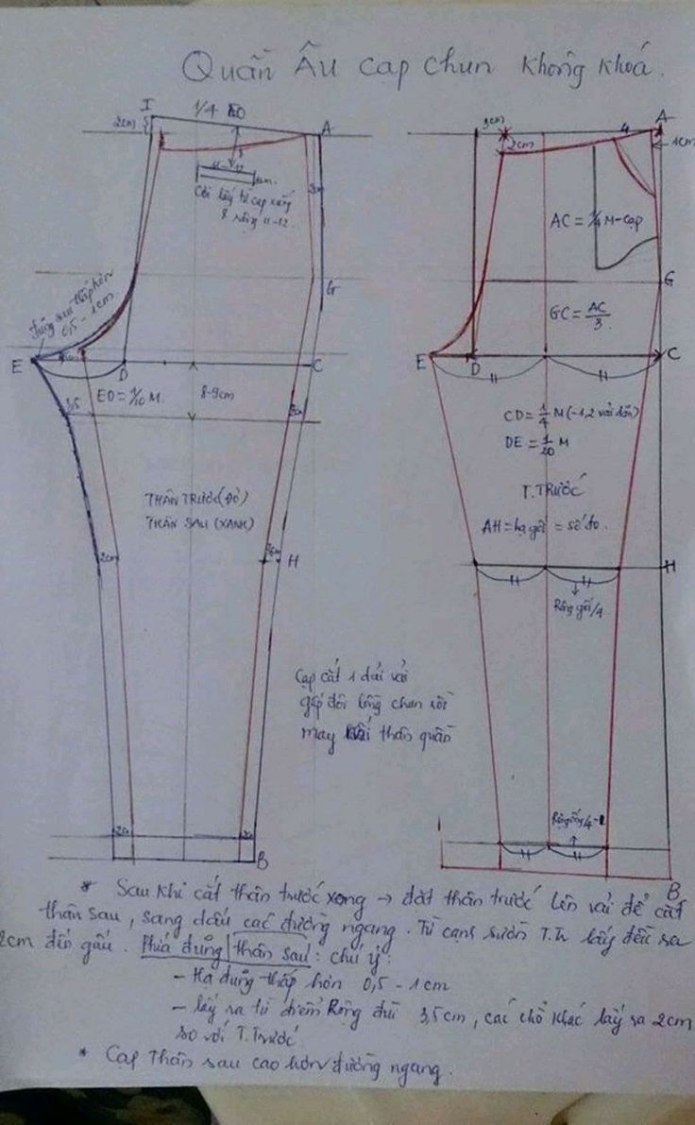 Quần Âu cạp chun không khoá.
I
1/4
2cm
A
3
2cm
Cơi lấy từ cạp xuống
8 rộng 11-12.
G
Đũng sau thấp hơn
0,5 - 1cm.
E
D
C
ED = 1/10 M.
8-9cm
3,5
THÂN TRƯỚC (ĐỎ)
THÂN SAU (XANH)
2cm
H
Cạp cắt 1 dải vải
gấp đôi lồng chun rồi
may với thân quần
B
3cm
2cm
4
A
1cm
AC = 1/4 M - cạp
G
GC = AC/3
E
D
C
CD = 1/4 M (-1,2 vải dãn)
DE = 1/20 M
T. TRƯỚC
AH = hạ gối = số đo.
H
Rộng gối/4
Rộng ống/4 -1
B
* Sau khi cắt thân trước xong → đặt thân trước lên vải để cắt
thân sau, sang dấu các đường ngang. Từ cạnh sườn T.Tr lấy đều ra
2cm đến gấu. Phía đũng thân sau: chú ý:
- Hạ đũng thấp hơn 0,5 - 1cm
- lấy ra từ điểm Rộng đùi 3,5cm, các chỗ khác lấy ra 2cm
so với T.Trước
* Cạp Thân sau cao hơn đường ngang.